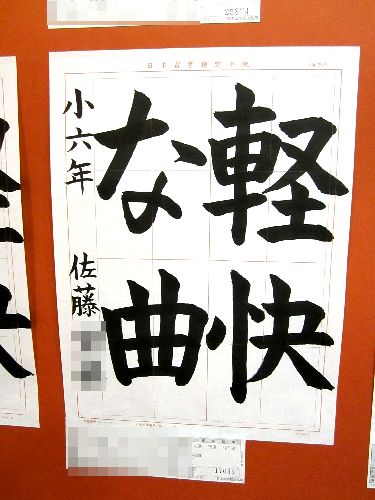 軽快
な曲
小六年 佐藤